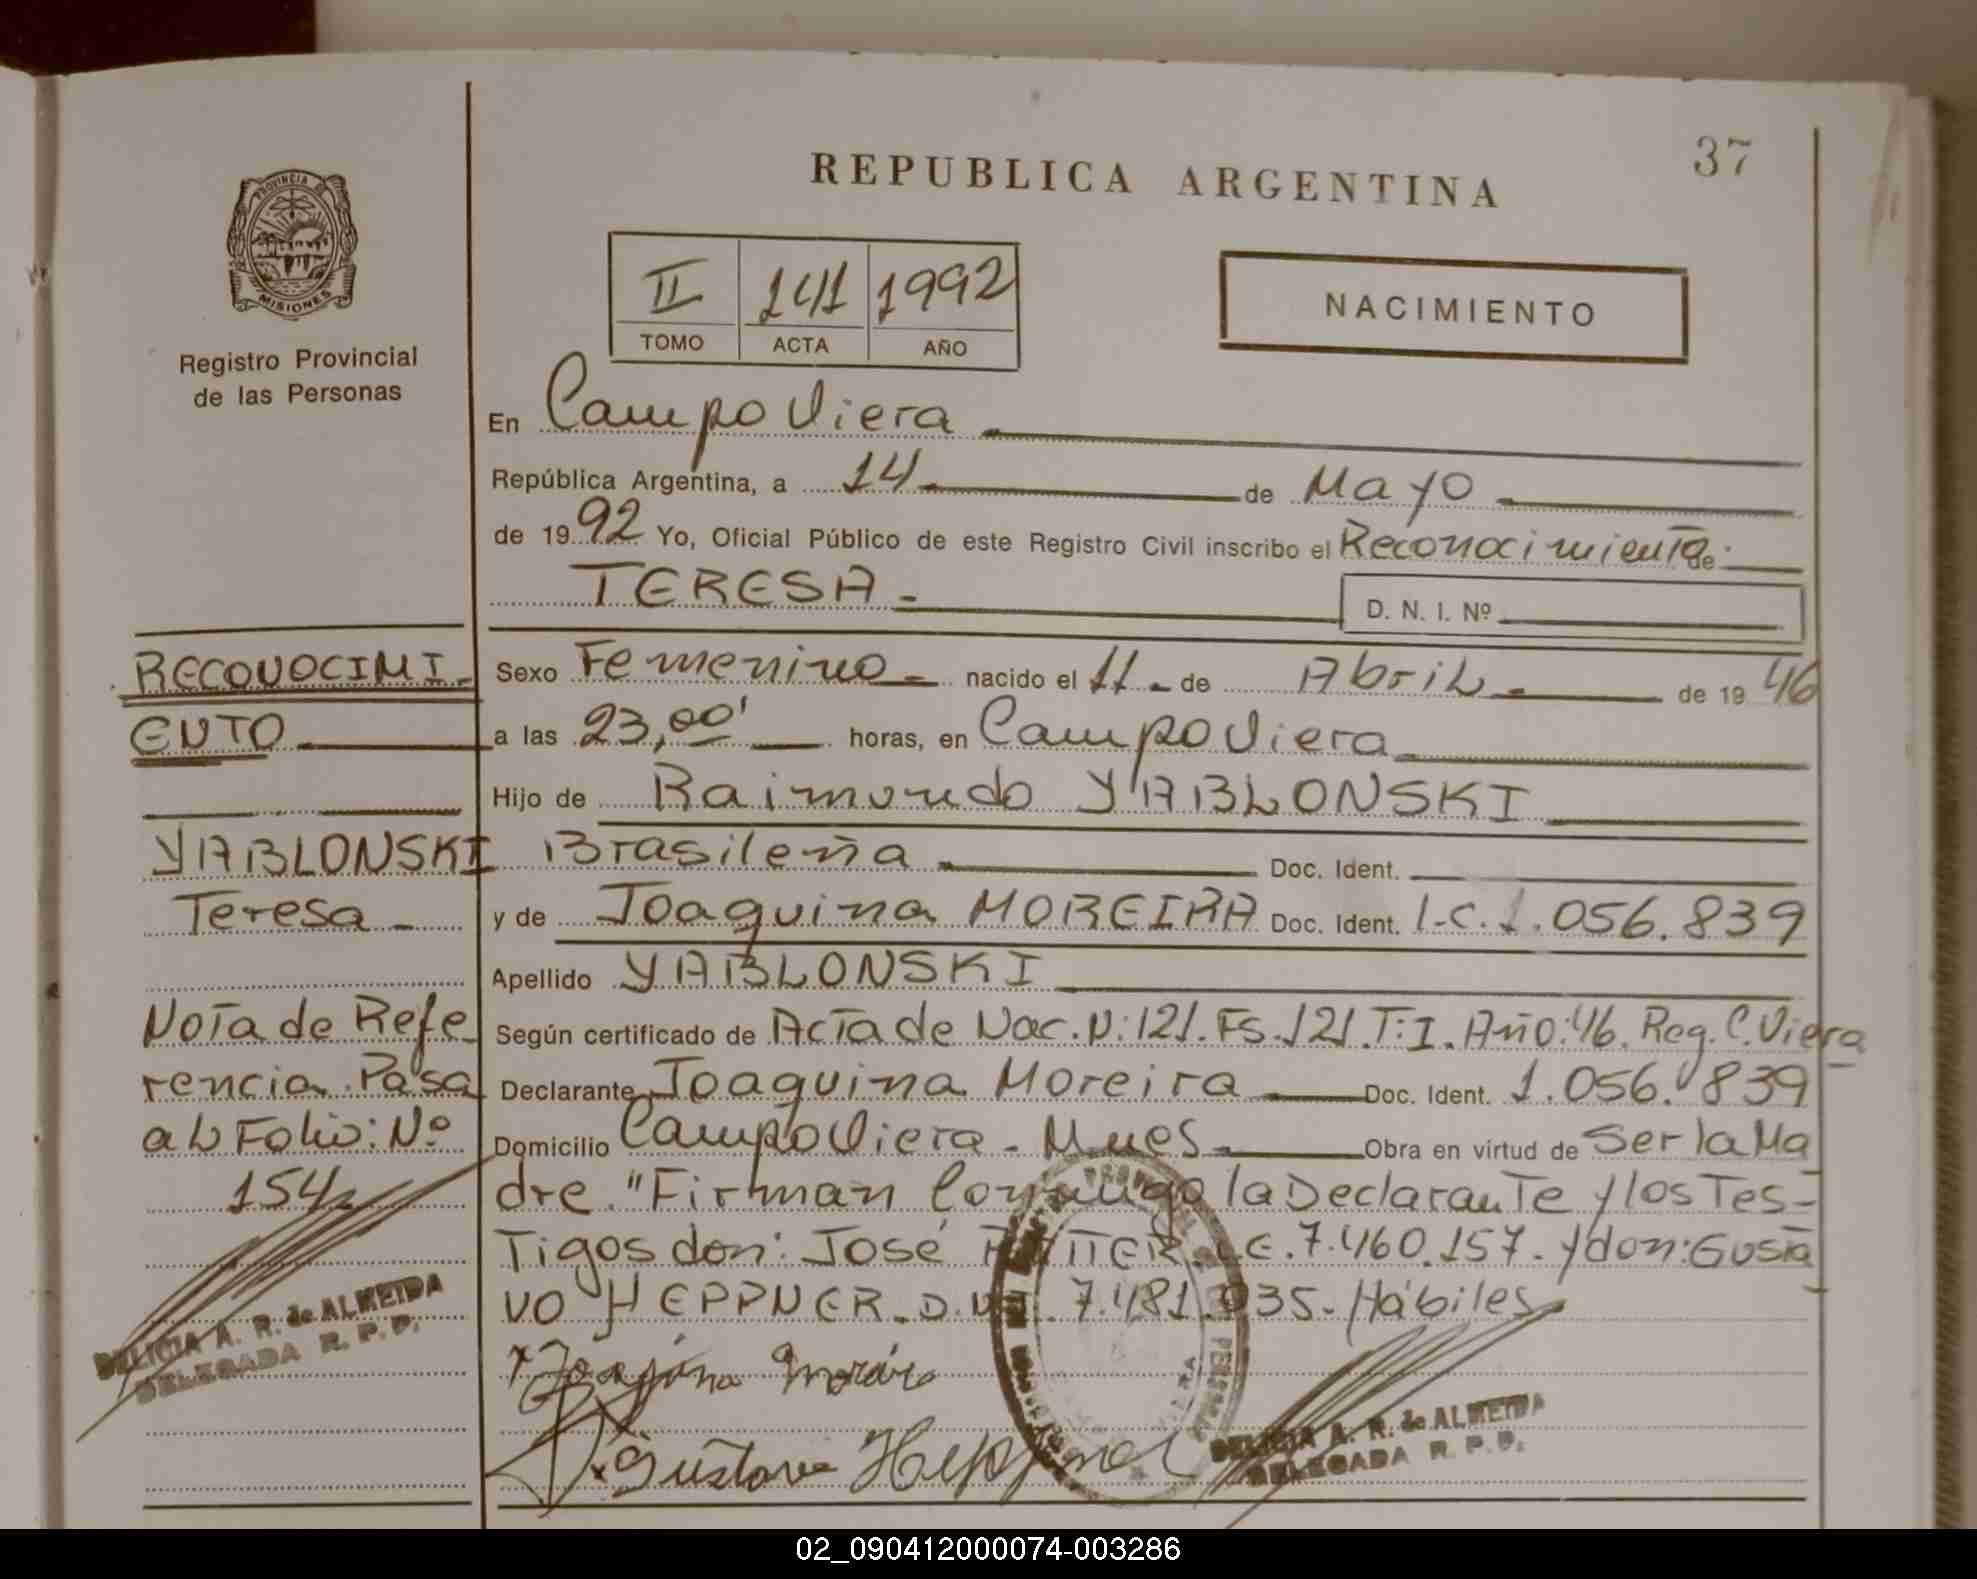 37
REPUBLICA ARGENTINA
PROVINCIA DE
MISIONES
Registro Provincial
de las Personas
II 141 1992
TOMO ACTA AÑO
NACIMIENTO
En Campo Viera
República Argentina, a 14 de Mayo
de 1992 Yo, Oficial Público de este Registro Civil inscribo el Reconocimiento de
TERESA D. N. I. Nº
RECONOCIMI
ENTO
YABLONSKI
Teresa
Nota de Refe
rencia Pasa
al Folio: Nº
154
DELICIA A. R. de ALMEIDA
DELEGADA R. P. P.
Sexo Femenino nacido el 11 de Abril de 1946
a las 23,00' horas, en Campo Viera
Hijo de Raimundo YABLONSKI
Brasileña Doc. Ident.
y de Joaquina MOREIRA Doc. Ident. L.C. 1.056.839
Apellido YABLONSKI
Según certificado de Acta de Nac. N: 121. Fs. 121. T: I. Año: 46. Reg. C. Viera
Declarante Joaquina Moreira Doc. Ident. 1.056.839
Domicilio Campo Viera - Mnes. Obra en virtud de Ser la Ma
dre. "Firman Conmigo la Declarante y los Tes-
Tigos don: José L.E. 7.460.157. y don: Gusta
vo HEPPNER. D.N.I. 7.481.035. Hábiles
Gustavo Heppner
DELICIA A. R. de ALMEIDA
DELEGADA R. P. P.
02_090412000074-003286